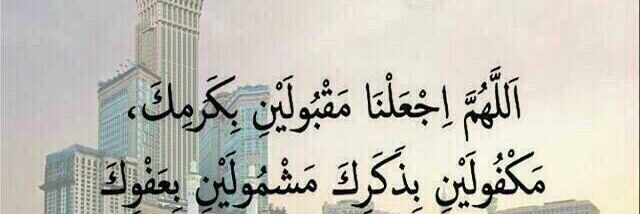 اَللَّهُمَّ اِجْعَلْنَا مَقْبُولَيْنِ بِكَرَمِكَ،
مَكْفُولَيْنِ بِذَكَرِكَ مَشْمُولَيْنِ بِعَفْوِكَ